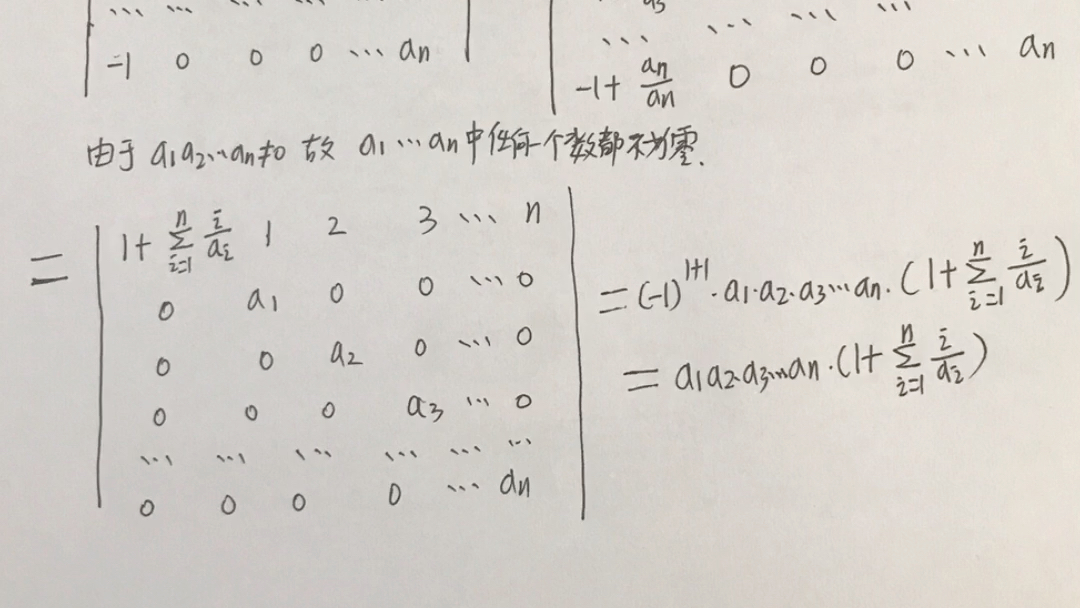 ... ... ... ... ...
-1 0 0 0 ... an
a3
... ... ... ...
-1+ an/an 0 0 0 ... an
由于 a1a2...an≠0 故 a1...an中任何一个数都不为零.
= | 1+ Σ(i=1→n) i/ai 1 2 3 ... n |
0 a1 0 0 ... 0
0 0 a2 0 ... 0
0 0 0 a3 ... 0
... ... ... ... ... ...
0 0 0 0 ... an
= (-1)^(1+1)·a1·a2·a3...an·(1+ Σ(i=1→n) i/ai)
= a1a2a3...an·(1+ Σ(i=1→n) i/ai)